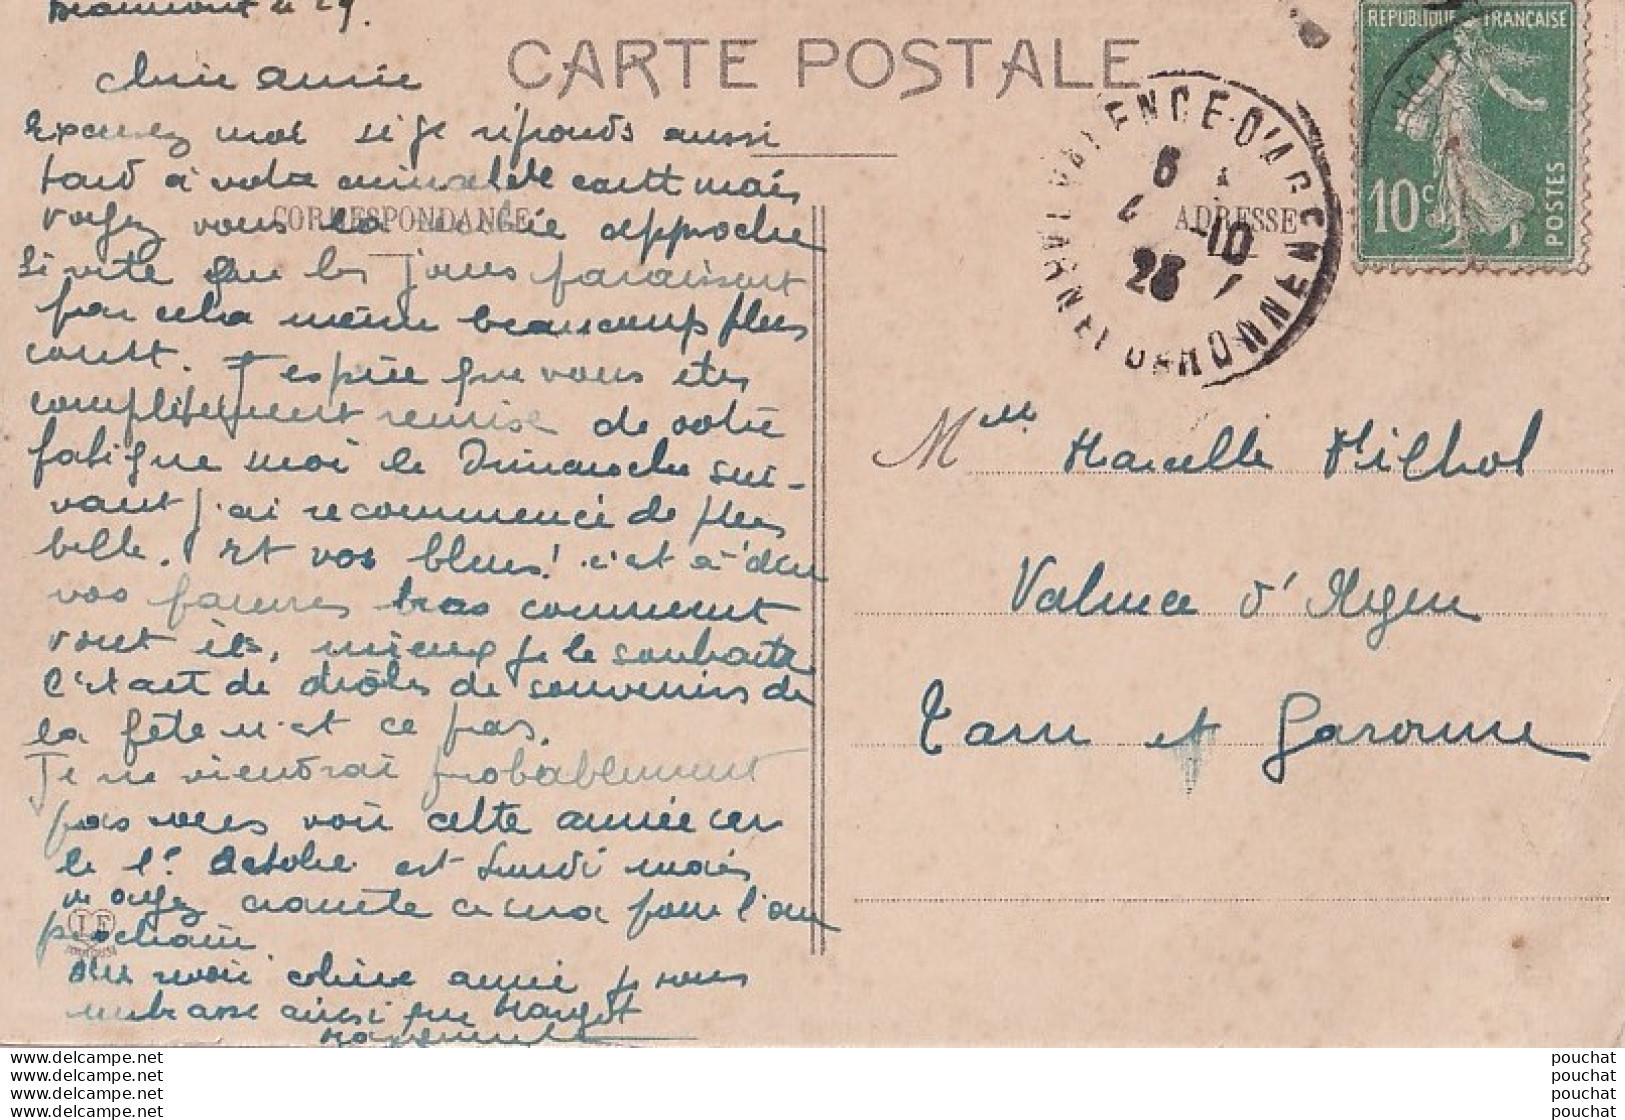 Beaumont le 29.
CARTE POSTALE
chère amie
Excusez moi si je réponds aussi
tard à votre carte mais
voyez vous la approche
CORRESPONDANCE
si vite que les jours paraissent
par cela même beaucoup plus
court. J'espère que vous etes
complètement remise de votre
fatigue moi le Dimanche sui-
vant j'ai recommencé de plus
belle. Et vos bleus! c'est à dire
vos pauvres bras comment
vont ils, mieux je le souhaite
c'etait de drôles de souvenirs de
la fête n'est ce pas.
Je ne viendrai probablement
pas vous voir cette année car
le 1er Octobre est Lundi mais
voyez comte ce sera pour l'an
prochain
Au revoir chère amie je vous
embrasse ainsi que Margot
REPUBLIQUE FRANÇAISE
10c
POSTES
VALENCE-D'AGEN
TARN-ET-GARONNE
6
4 -10
23
ADRESSE
Melle Marcelle Milhol
Valence d'Agen
Tarn et Garonne
www.delcampe.net
www.delcampe.net
www.delcampe.net
www.delcampe.net
pouchat
pouchat
pouchat
pouchat